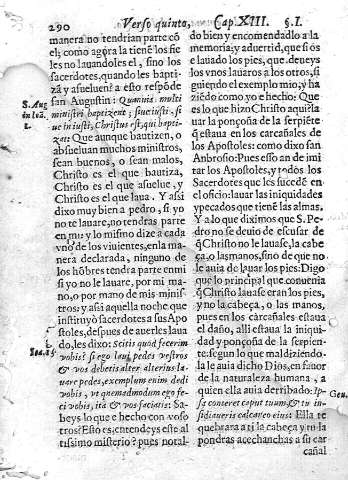 290
Verso quinto,
Cap.XIII.
§.I.
manera no tendrian parte cõ
el; como agora la tienẽ los fie
les no lauandoles el, sino los
sacerdotes, quando les bapti-
zã y asueluen? a esto respõde
san Augustin: Quamuis multi
ministri baptizent, siue iusti, si
ue iniusti, Christus est, qui bapti-
zat: Que aunque bautizen, o
absueluan muchos ministros,
sean buenos, o sean malos,
Christo es el que bautiza,
Christo es el que asuelue, y
Christo es el que laua. Y assi
dixo muy bien a pedro, si yo
no te lauare, no tendras parte
en mi: y lo mismo dize a cada
vno de los viuientes, en la ma
nera declarada, ninguno de
los hõbres tendra parte en mi
si yo no le lauare, por mi ma-
no, o por mano de mis minis-
tros: y assi aquella noche que
instituyò sacerdotes a sus Apo
stoles, despues de auerles laua
do, les dixo: Scitis quod fecerim
vobis? si ego laui pedes vestros
& vos debetis alter alterius la-
uare pedes, exemplum enim dedi
vobis, vt quemadmodum ego fe-
ci vobis, ita & vos faciatis: Sa-
beys lo que he hecho con voso
tros? Esto es, entendeys este al
tissimo misterio? pues notal-
S. Aug
Ioa. 13.
do bien y encomendadlo a la
memoria; y aduertid, que si os
e lauado los pies, que deueys
los vnos lauaros a los otros, si
guiendo el exemplo mio; y ha
ziẽdo como yo e hecho: Que
es lo que hizo Christo aqui? la
uar la ponçoña de la serpiẽte
q̃ estaua en los carcañales de
los Apostoles: como dixo san
Anbrosio: Pues esso an de imi
tar los Apostoles, y todos los
Sacerdotes que les succedẽ en
el oficio: lauar las iniquidades
y pecados que tienẽ las almas.
Y a lo que diximos que S. Pe
dro no se deuio de escusar de
q̃ Christo no le lauase, la cabe
ça, o las manos, sino de que no
le auia de lauar los pies: Digo
que lo principal que conuenia
q̃ Christo lauase eran los pies,
y no la cabeça, o las manos,
pues en los carcañales estaua
el daño, alli estaua la iniqui-
dad y ponçoña de la serpien-
te: segun lo que maldiziendo-
la le auia dicho Dios, en fauor
de la naturaleza humana, a
quien ella auia derribado: Ip-
sa conteret caput tuum, & tu in-
sidiaueris calcaneo eius: Ella te
quebrara a ti la cabeça y tu la
pondras acechanchas a su car
cañal
Gen.